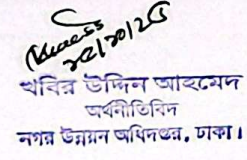 খবির উদ্দিন আহমেদ
অর্থনীতিবিদ
নগর উন্নয়ন অধিদপ্তর, ঢাকা।